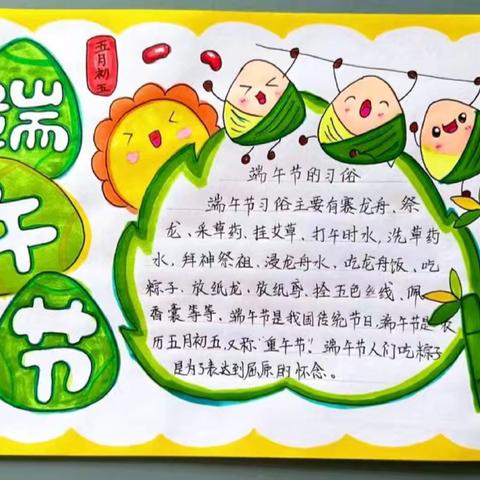 端
午
节
五月初五
端午节的习俗
端午节习俗主要有赛龙舟、祭
龙、采草药、挂艾草、打午时水，洗草药
水，拜神祭祖、浸龙舟水、吃龙舟饭、吃
粽子、放纸龙、放纸鸢、拴五色丝线、佩
香囊等等，端午节是我国传统节日，端午节是农
历五月初五，又称"重午节"。端午节人们吃粽子
是为了表达到屈原的怀念。